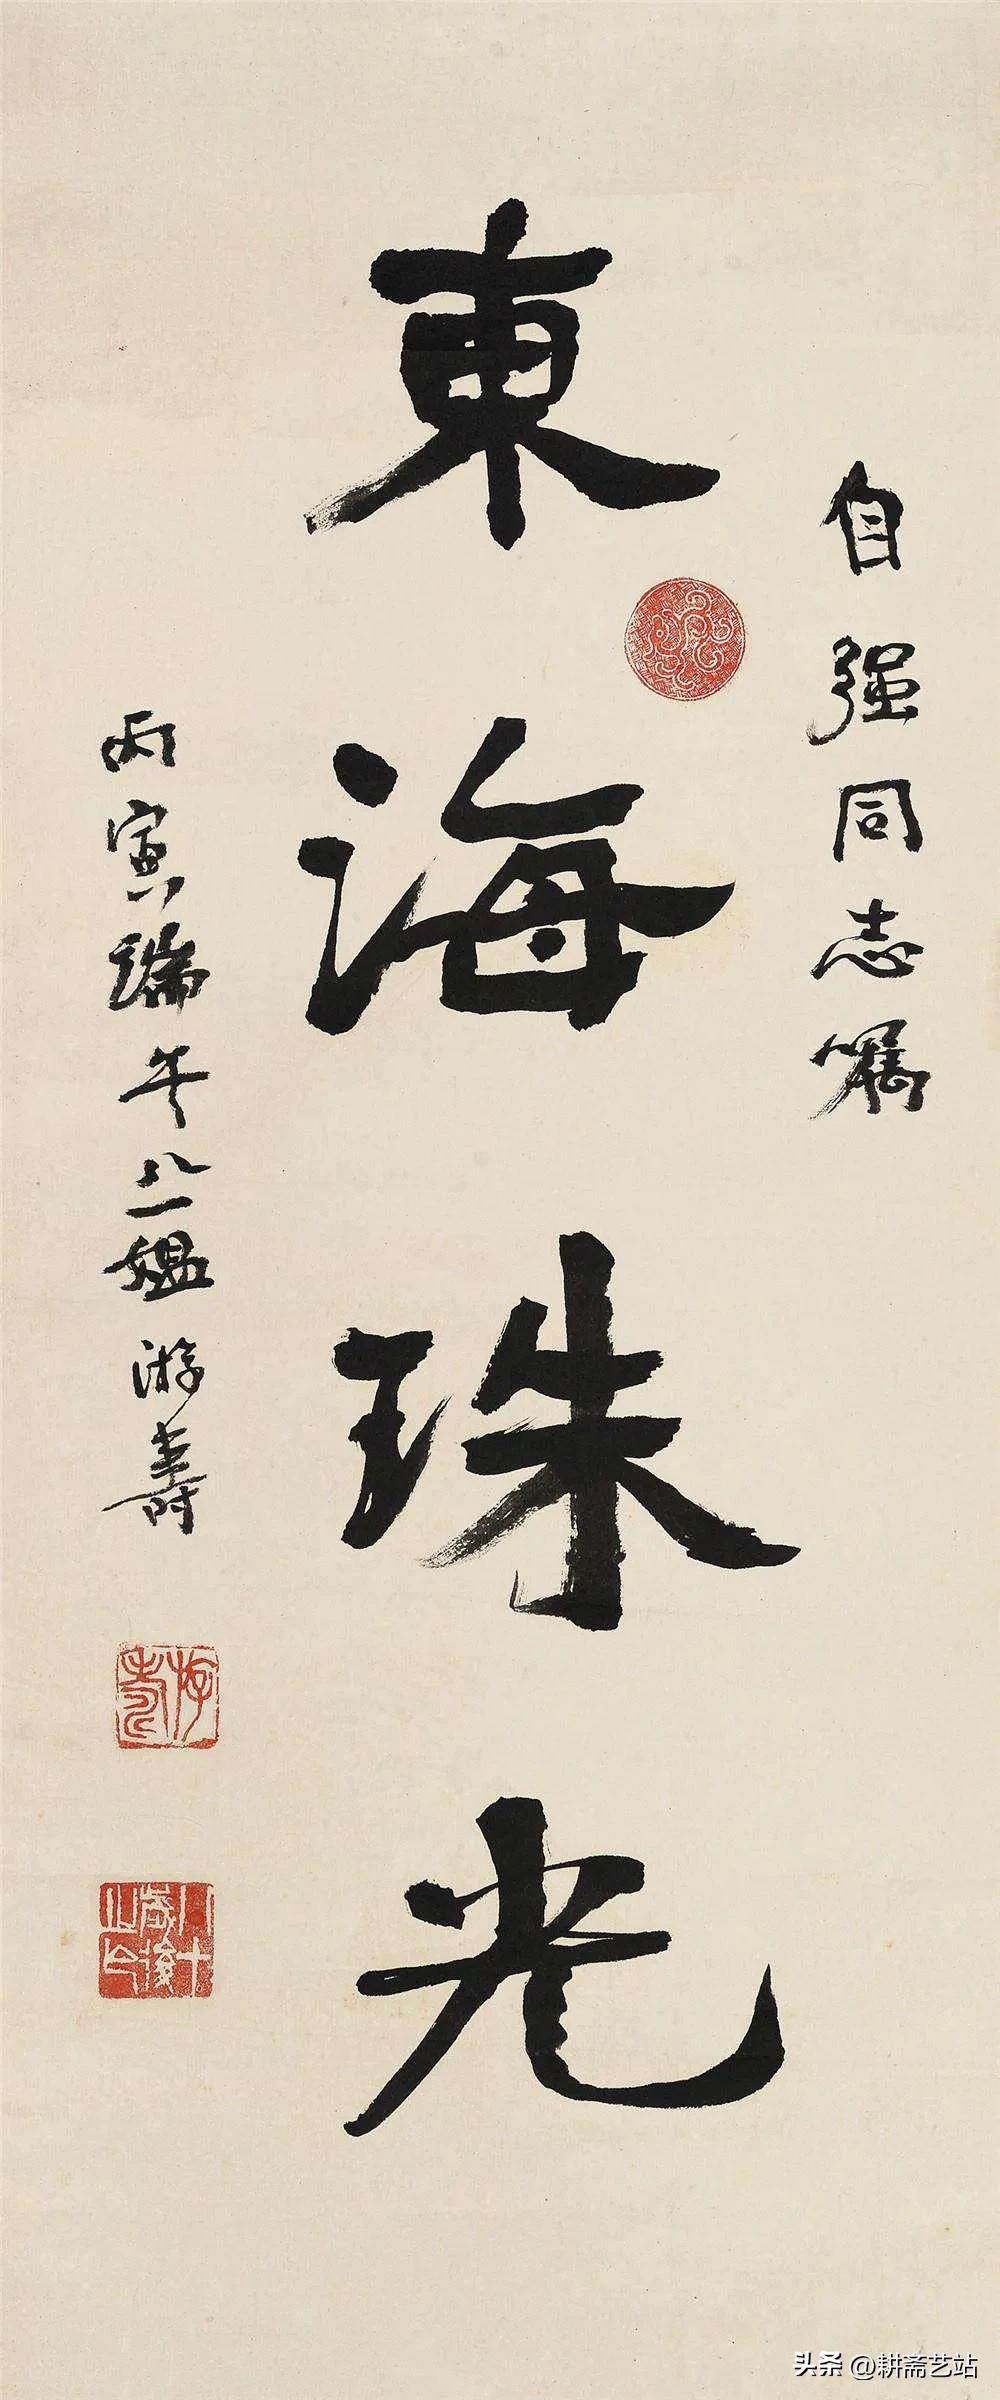 自强同志嘱
東海珠光
丙寅端午八一媪游壽
游壽
八十歲後之作
头条 @耕斋艺站